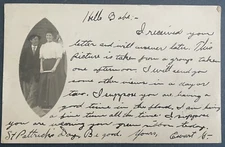 Hello Babe -
I received your
letter and will answer later. This
picture is taken from a group taken
one afternoon. I will send you
some other views in a day or
two. I suppose you are having a
good time in the flood, I am having
a fine time all the time. I suppose
you are wearing your green today,
St Patricks Day. Be good. Yours,